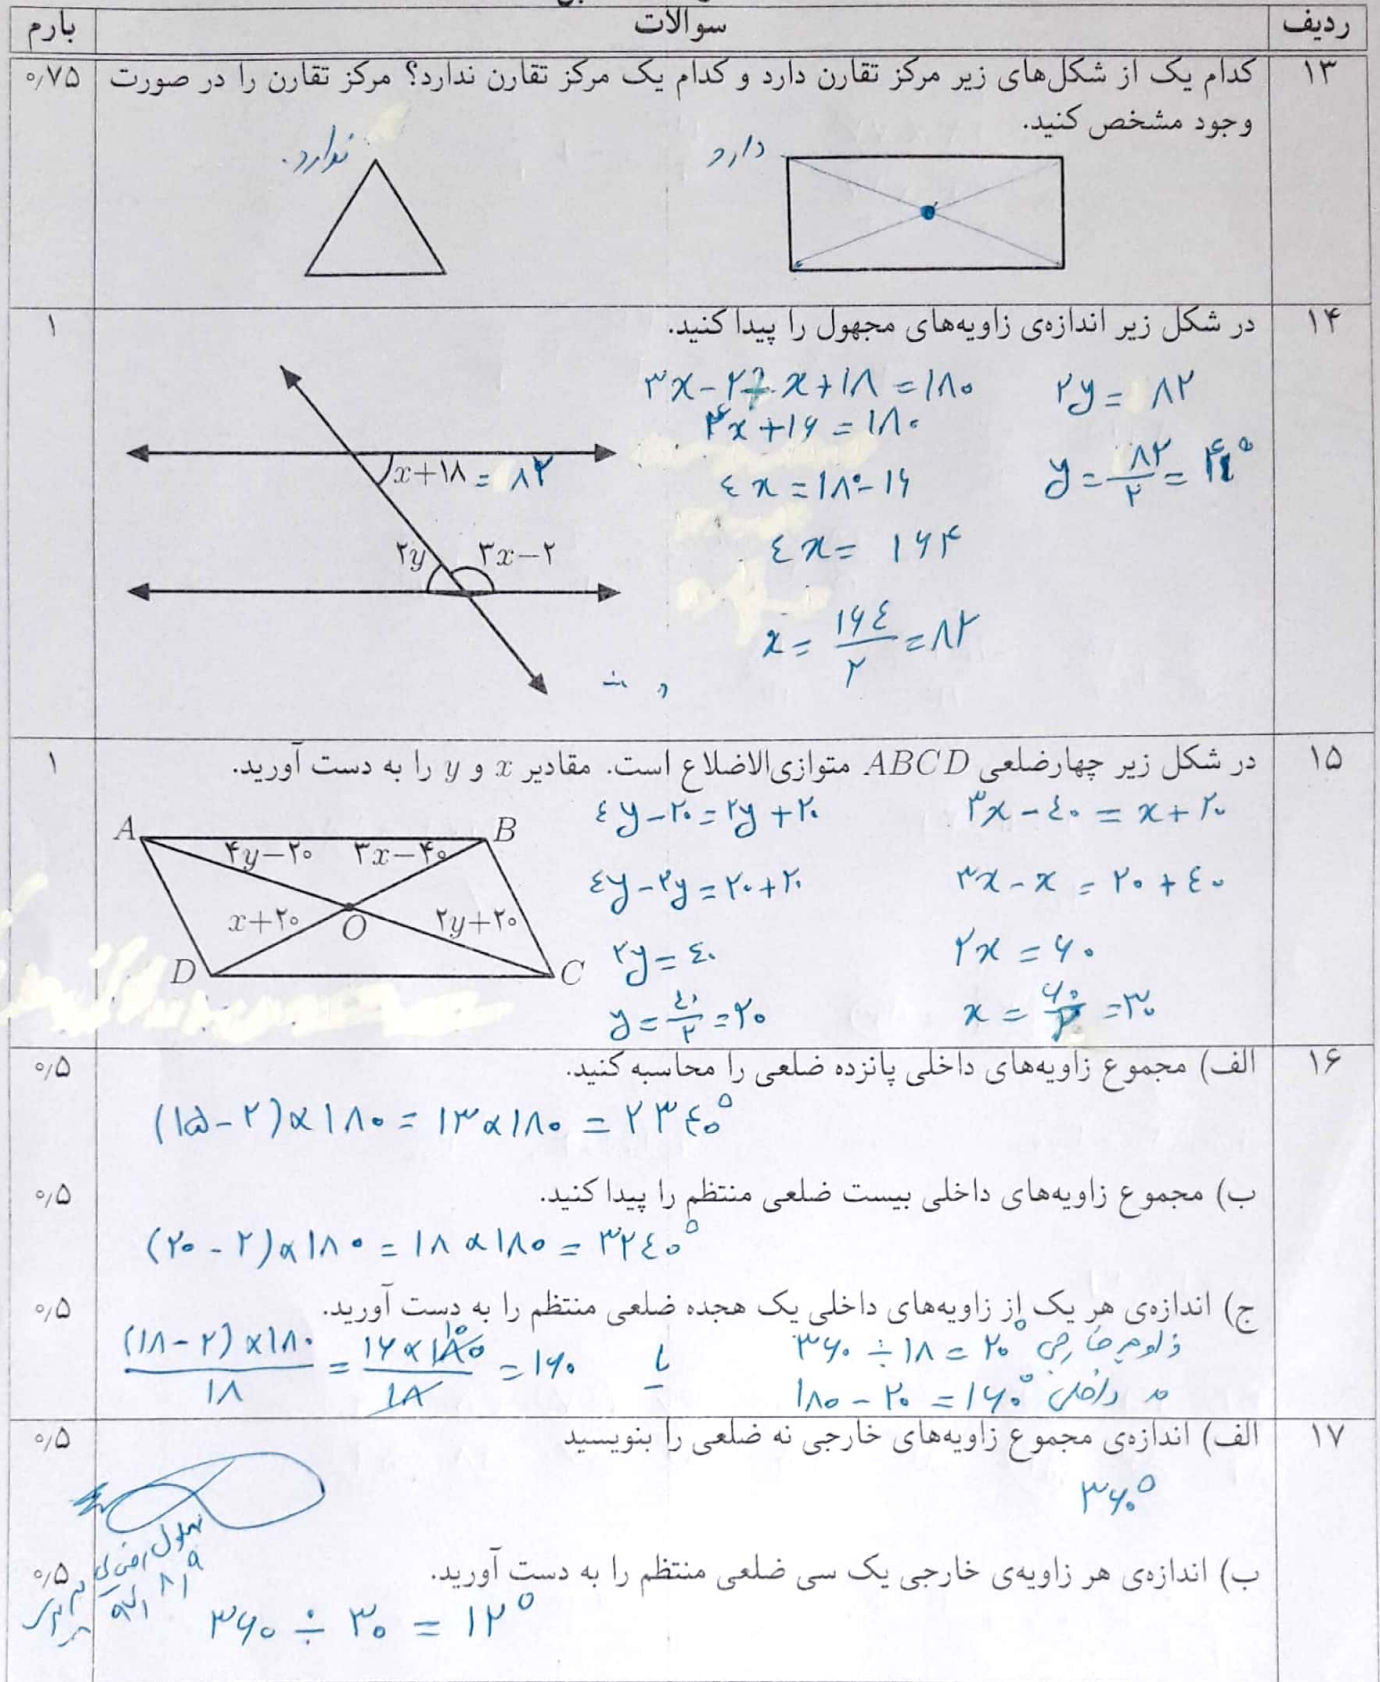 ردیف سوالات بارم
۱۳ کدام یک از شکل‌های زیر مرکز تقارن دارد و کدام یک مرکز تقارن ندارد؟ مرکز تقارن را در صورت ۰٫۷۵
وجود مشخص کنید.
دارد
ندارد.
۱۴ در شکل زیر اندازه‌ی زاویه‌های مجهول را پیدا کنید. ۱
x+۱۸ = ۸۲
۲y ۳x−۲
۳x−۲+x+۱۸=۱۸۰
۴x+۱۶=۱۸۰
٤x=۱۸۰−۱۶
٤x= ۱۶۴
x= ۱۶٤/۲ =۸۲
۲y= ۸۲
y= ۸۲/۲ = ۴۱°
۱۵ در شکل زیر چهارضلعی ABCD متوازی‌الاضلاع است. مقادیر x و y را به دست آورید. ۱
A B
۴y−۲۰ ۳x−۴۰
x+۲۰ O ۲y+۲۰
D C
۳x−٤۰ = x+۲۰
۳x−x = ۲۰+٤۰
۲x = ۶۰
x = ۶۰/۲ =۳۰
٤y−۲۰=۲y+۲۰
٤y−۲y=۲۰+۲۰
۲y=٤۰
y= ٤۰/۲ =۲۰
۱۶ الف) مجموع زاویه‌های داخلی پانزده ضلعی را محاسبه کنید. ۰٫۵
(۱۵−۲)×۱۸۰=۱۳×۱۸۰ = ۲۳٤۰°
ب) مجموع زاویه‌های داخلی بیست ضلعی منتظم را پیدا کنید. ۰٫۵
(۲۰−۲)×۱۸۰=۱۸×۱۸۰=۳۲٤۰°
ج) اندازه‌ی هر یک از زاویه‌های داخلی یک هجده ضلعی منتظم را به دست آورید. ۰٫۵
زاویه خارجی ۳۶۰÷۱۸=۲۰°
داخلی ۱۸۰−۲۰=۱۶۰°
یا
(۱۸−۲)×۱۸۰/۱۸ = ۱۶×۱۸۰/۱۸ =۱۶۰
۱۰
۱۷ الف) اندازه‌ی مجموع زاویه‌های خارجی نه ضلعی را بنویسید ۰٫۵
۳۶۰°
ب) اندازه‌ی هر زاویه‌ی خارجی یک سی ضلعی منتظم را به دست آورید. ۰٫۵
۳۶۰÷۳۰=۱۲°